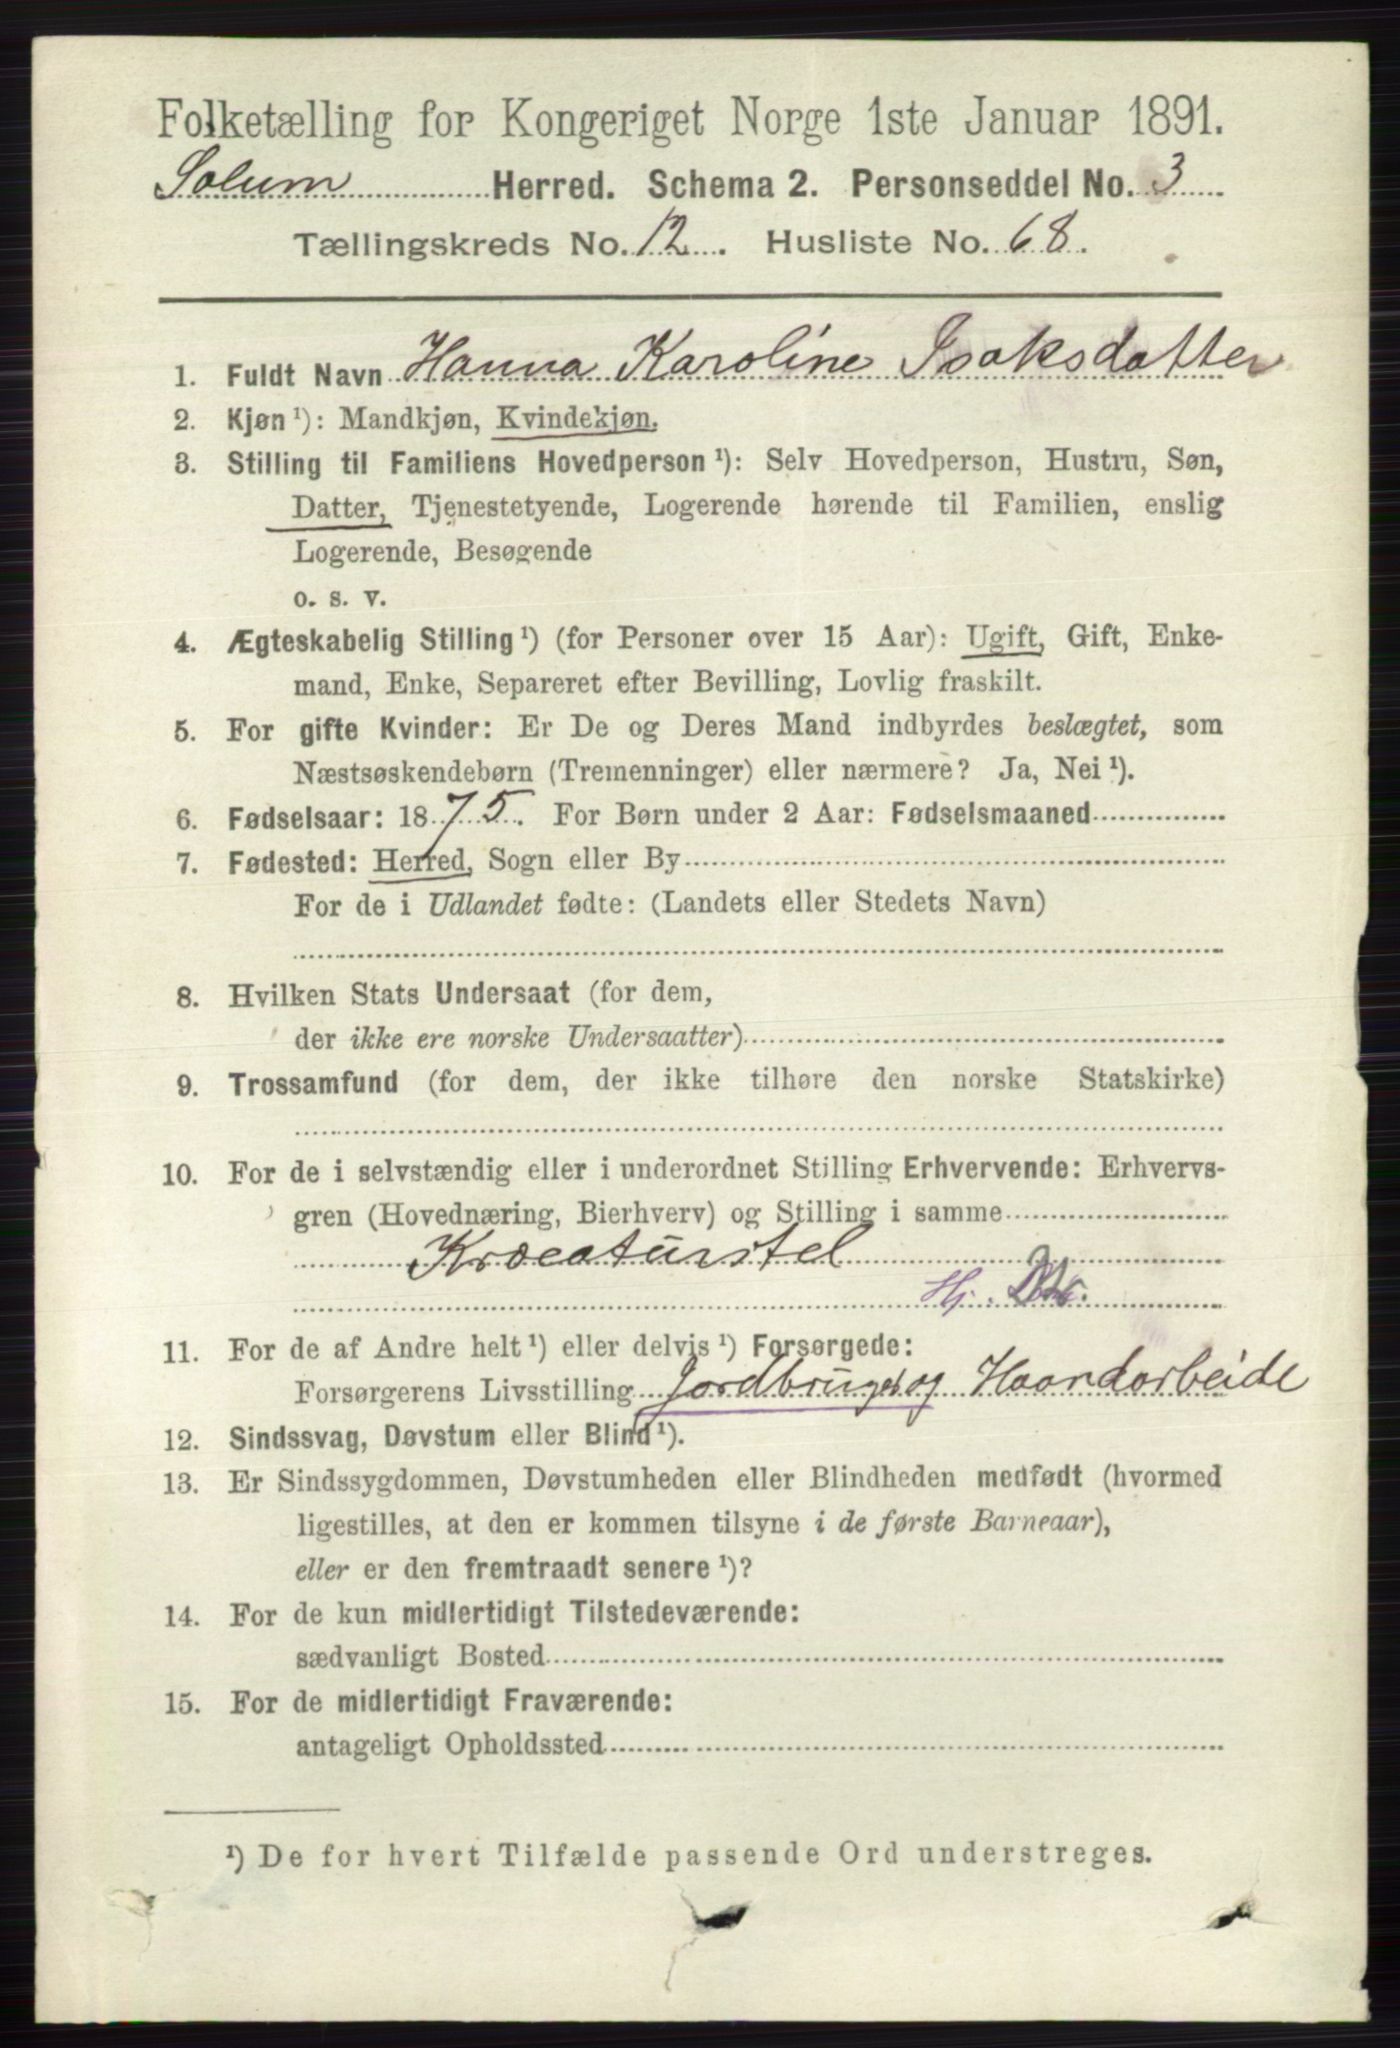 Folketælling for Kongeriget Norge 1ste Januar 1891.
Solum Herred. Schema 2. Personseddel No. 3
Tællingskreds No. 12. Husliste No. 68.
1. Fuldt Navn Hanna Karoline Isaksdatter
2. Kjøn ¹): Mandkjøn, Kvindekjøn.
3. Stilling til Familiens Hovedperson ¹): Selv Hovedperson, Hustru, Søn,
Datter, Tjenestetyende, Logerende hørende til Familien, enslig
Logerende, Besøgende
o. s. v.
4. Ægteskabelig Stilling ¹) (for Personer over 15 Aar): Ugift, Gift, Enke-
mand, Enke, Separeret efter Bevilling, Lovlig fraskilt.
5. For gifte Kvinder: Er De og Deres Mand indbyrdes beslægtet, som
Næstsøskendebørn (Tremenninger) eller nærmere? Ja, Nei ¹).
6. Fødselsaar: 1875. For Børn under 2 Aar: Fødselsmaaned
7. Fødested: Herred, Sogn eller By
For de i Udlandet fødte: (Landets eller Stedets Navn)
8. Hvilken Stats Undersaat (for dem,
der ikke ere norske Undersaatter)
9. Trossamfund (for dem, der ikke tilhøre den norske Statskirke)
10. For de i selvstændig eller i underordnet Stilling Erhvervende: Erhvervs-
gren (Hovednæring, Bierhverv) og Stilling i samme
Kreaturstel
Hj.
11. For de af Andre helt ¹) eller delvis ¹) Forsørgede:
Forsørgerens Livsstilling Jordbruget og Haandarbeide
12. Sindssvag, Døvstum eller Blind ¹).
13. Er Sindssygdommen, Døvstumheden eller Blindheden medfødt (hvormed
ligestilles, at den er kommen tilsyne i de første Barneaar),
eller er den fremtraadt senere ¹)?
14. For de kun midlertidigt Tilstedeværende:
sædvanligt Bosted
15. For de midlertidigt Fraværende:
antageligt Opholdssted
¹) De for hvert Tilfælde passende Ord understreges.